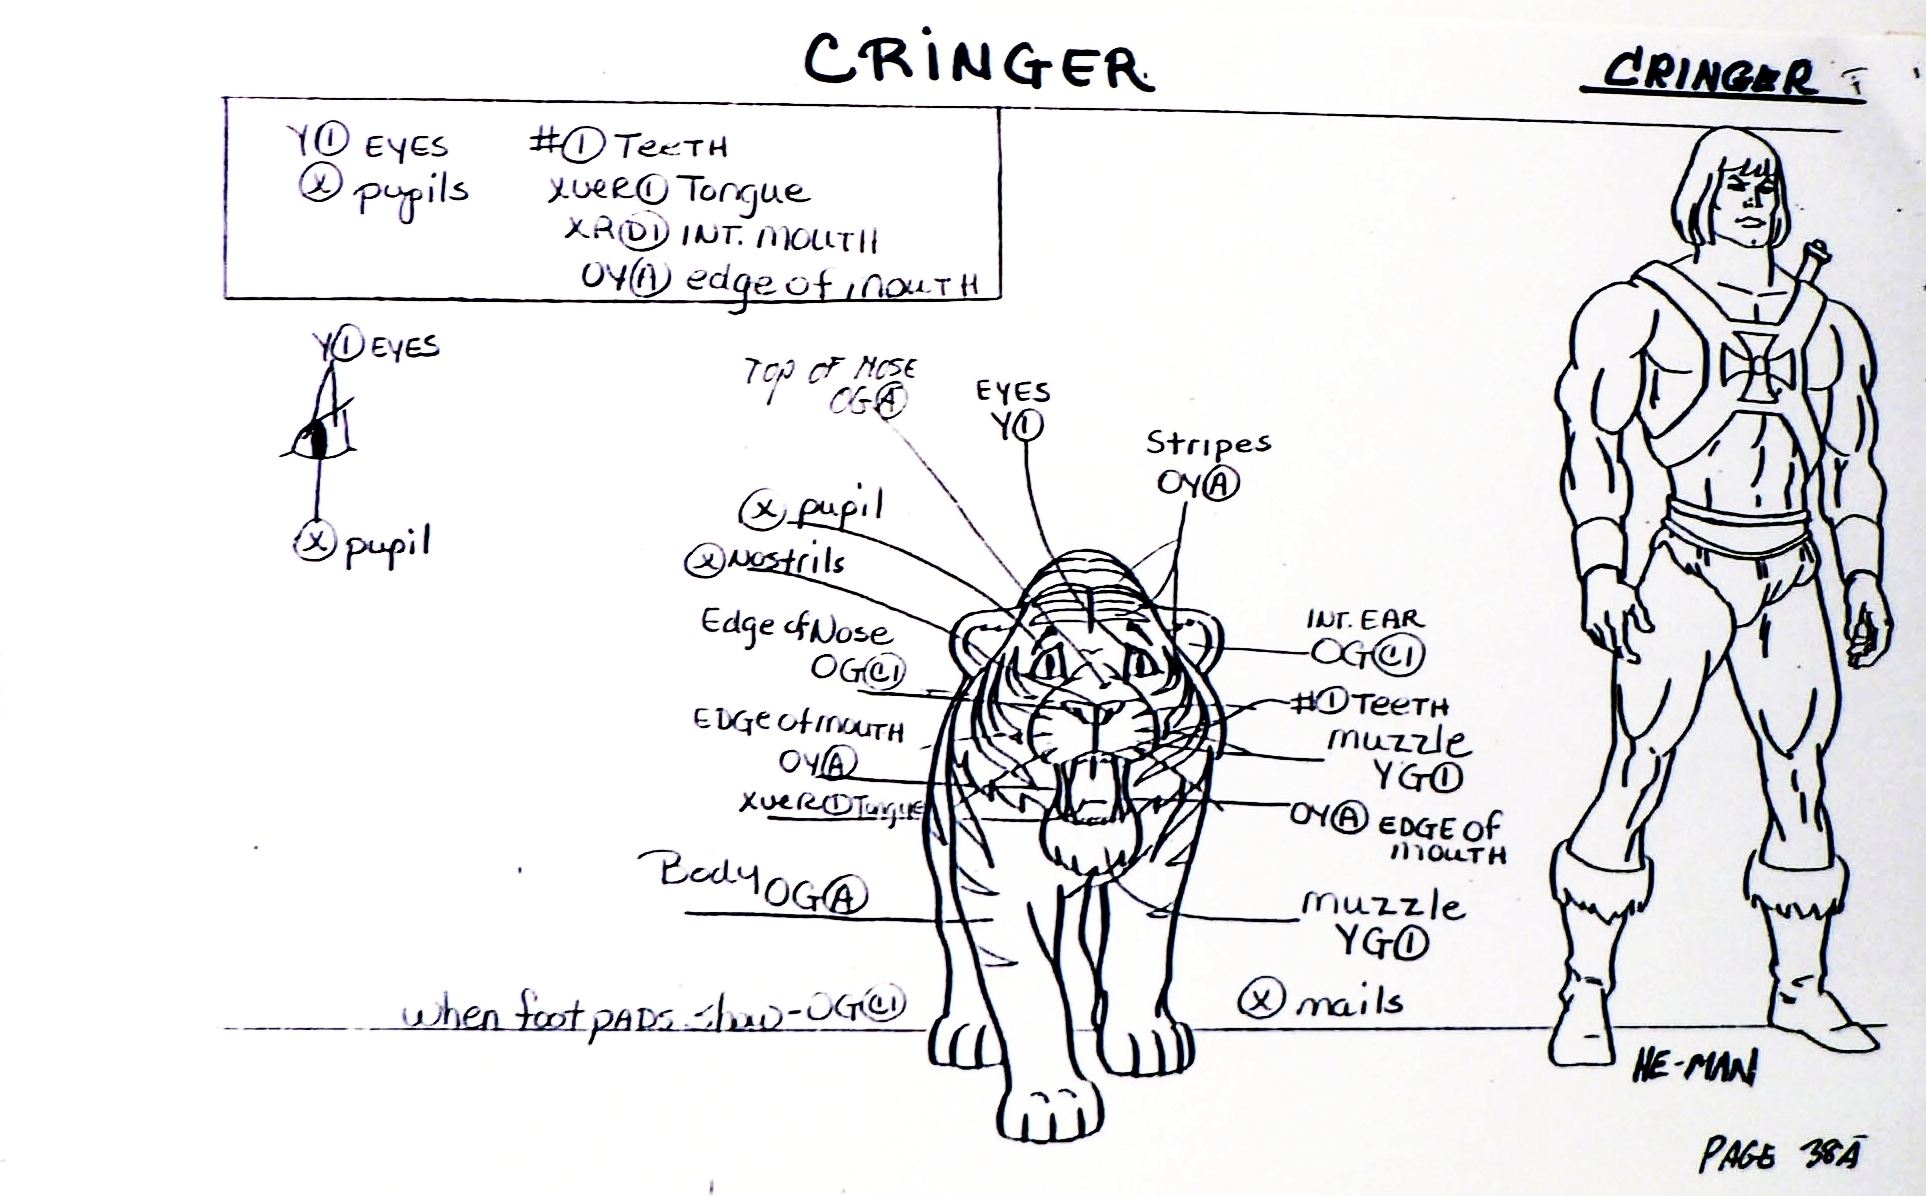 CRINGER
CRINGER
Y① EYES
Ⓧ pupils
#① TeeTH
XVER① Tongue
XR(D1) INT. MOUTH
OY(A) edge of MOUTH
Y① EYES
Ⓧ pupil
TOP OF NOSE
OGⒶ
EYES
Y①
Stripes
OYⒶ
Ⓧ pupil
Ⓧ Nostrils
Edge of Nose
OG(C1)
EDGE of MOUTH
OYⒶ
XVER① Tongue
Body OGⒶ
when foot PADS show - OG(C1)
INT. EAR
OG(C1)
#① TeeTH
muzzle
YG①
OYⒶ EDGE OF
MOUTH
muzzle
YG①
Ⓧ nails
HE-MAN
PAGE 38A